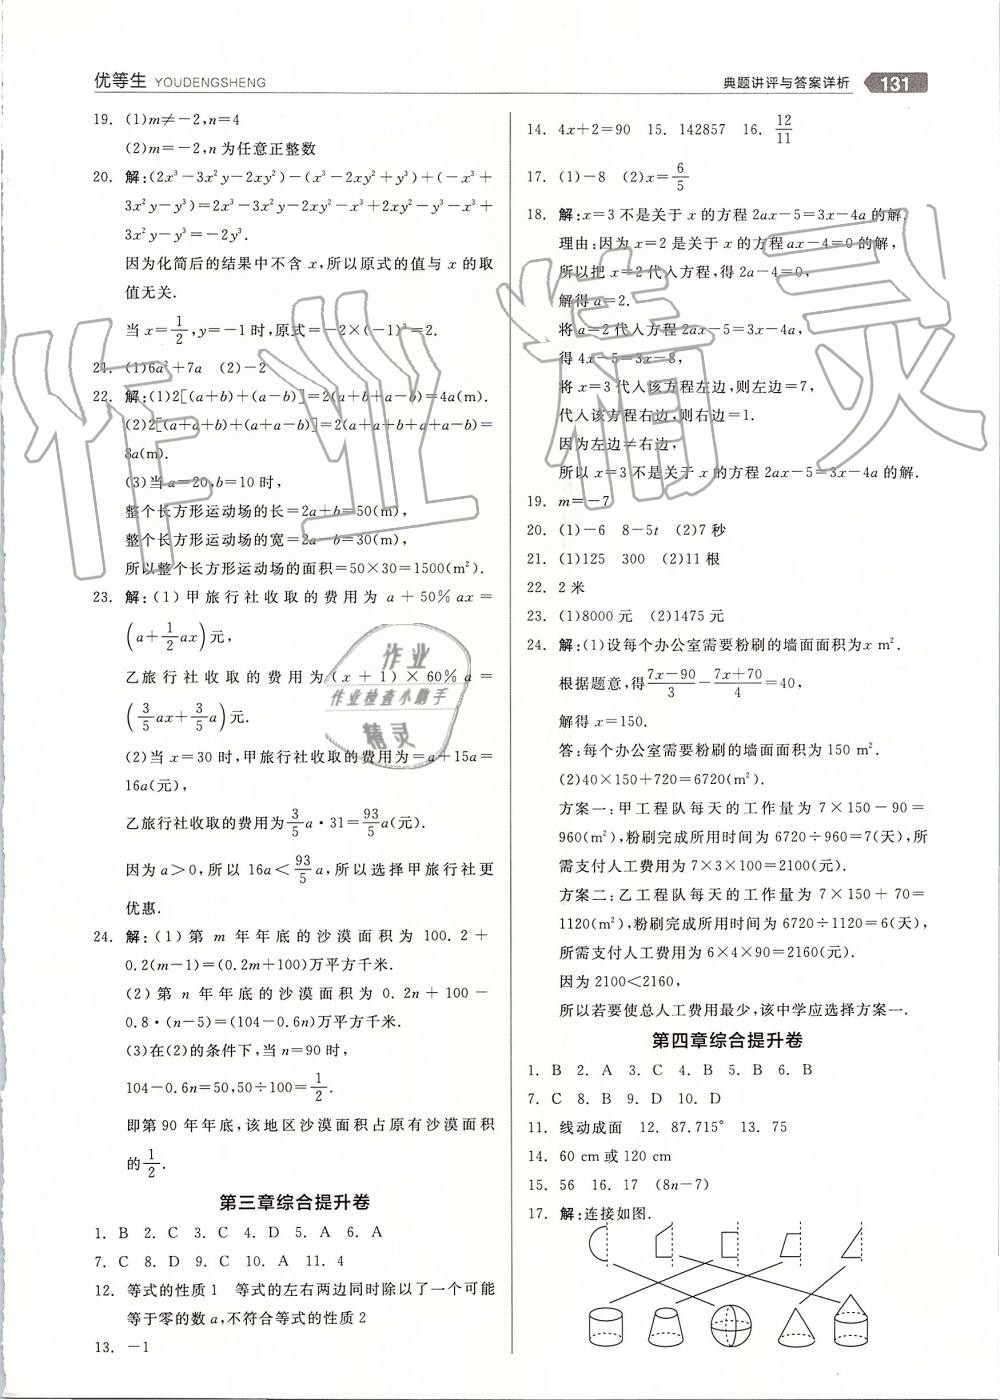 优等生 YOUDENGSHENG
典题讲评与答案详析 131
19. (1)m≠-2,n=4
(2)m=-2,n 为任意正整数
20. 解:(2x³-3x²y-2xy²)-(x³-2xy²+y³)+(-x³+
3x²y-y³)=2x³-3x²y-2xy²-x³+2xy²-y³-x³+
3x²y-y³=-2y³.
因为化简后的结果中不含 x,所以原式的值与 x 的取
值无关.
当 x=1/2,y=-1 时,原式=-2×(-1)³=2.
21. (1)6a²+7a (2)-2
22. 解:(1)2[(a+b)+(a-b)]=2(a+b+a-b)=4a(m).
(2)2[(a+a+b)+(a+a-b)]=2(a+a+b+a+a-b)=
8a(m).
(3)当 a=20,b=10 时,
整个长方形运动场的长=2a+b=50(m),
整个长方形运动场的宽=2a-b=30(m),
所以整个长方形运动场的面积=50×30=1500(m²).
23. 解:(1)甲旅行社收取的费用为 a+50%ax=
(a+1/2ax)元,
乙旅行社收取的费用为(x+1)×60%a=
(3/5ax+3/5a)元.
(2)当 x=30 时,甲旅行社收取的费用为=a+15a=
16a(元),
乙旅行社收取的费用为3/5a·31=93/5a(元).
因为 a>0,所以 16a<93/5a,所以选择甲旅行社更
优惠.
24. 解:(1)第 m 年年底的沙漠面积为 100.2+
0.2(m-1)=(0.2m+100)万平方千米.
(2)第 n 年年底的沙漠面积为 0.2n+100-
0.8·(n-5)=(104-0.6n)万平方千米.
(3)在(2)的条件下,当 n=90 时,
104-0.6n=50,50÷100=1/2.
即第 90 年年底,该地区沙漠面积占原有沙漠面积
的1/2.
第三章综合提升卷
1. B 2. C 3. C 4. D 5. A 6. A
7. C 8. D 9. C 10. A 11. 4
12. 等式的性质 1 等式的左右两边同时除以了一个可能
等于零的数 a,不符合等式的性质 2
13. -1
14. 4x+2=90 15. 142857 16. 12/11
17. (1)-8 (2)x=6/5
18. 解:x=3 不是关于 x 的方程 2ax-5=3x-4a 的解.
理由:因为 x=2 是关于 x 的方程 ax-4=0 的解,
所以把 x=2 代入方程,得 2a-4=0,
解得 a=2.
将 a=2 代入方程 2ax-5=3x-4a,
得 4x-5=3x-8,
将 x=3 代入该方程左边,则左边=7,
代入该方程右边,则右边=1.
因为左边≠右边,
所以 x=3 不是关于 x 的方程 2ax-5=3x-4a 的解.
19. m=-7
20. (1)-6 8-5t (2)7 秒
21. (1)125 300 (2)11 根
22. 2 米
23. (1)8000 元 (2)1475 元
24. 解:(1)设每个办公室需要粉刷的墙面面积为x m².
根据题意,得(7x-90)/3-(7x+70)/4=40,
解得 x=150.
答:每个办公室需要粉刷的墙面面积为 150 m².
(2)40×150+720=6720(m²).
方案一:甲工程队每天的工作量为 7×150-90=
960(m²),粉刷完成所用时间为 6720÷960=7(天),所
需支付人工费用为 7×3×100=2100(元).
方案二:乙工程队每天的工作量为 7×150+70=
1120(m²),粉刷完成所用时间为 6720÷1120=6(天),
所需支付人工费用为 6×4×90=2160(元).
因为 2100<2160,
所以若要使总人工费用最少,该中学应选择方案一.
第四章综合提升卷
1. B 2. A 3. C 4. B 5. B 6. B
7. C 8. B 9. D 10. D
11. 线动成面 12. 87.715° 13. 75
14. 60 cm 或 120 cm
15. 56 16. 17 (8n-7)
17. 解:连接如图.
作业精灵
作业
作业检查小助手
精灵